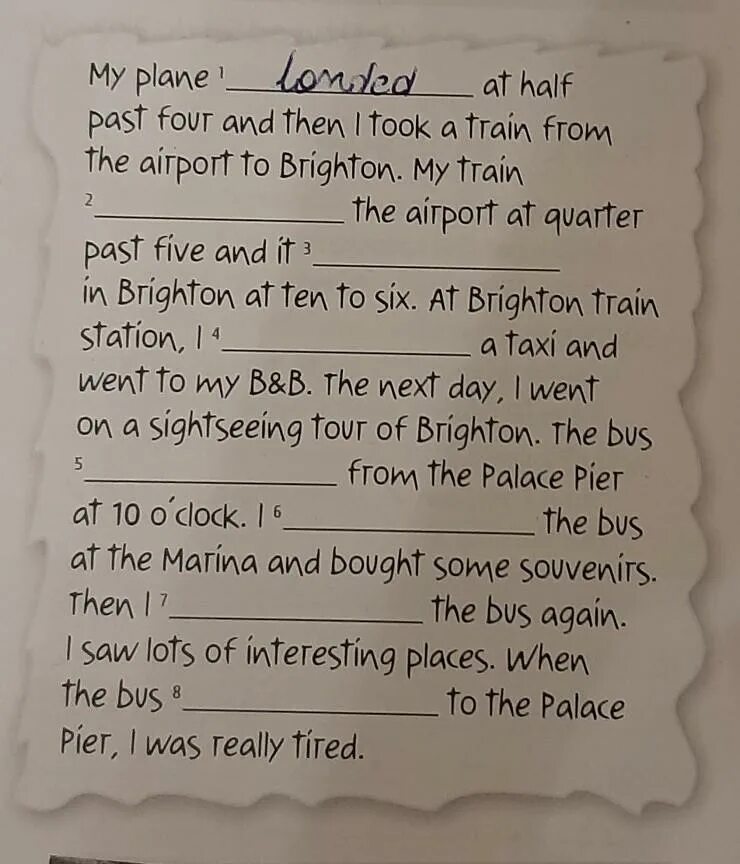 My plane 1 londed at half
past four and then I took a train from
the airport to Brighton. My train
2 the airport at quarter
past five and it 3
in Brighton at ten to six. At Brighton train
station, I 4 a taxi and
went to my B&B. The next day, I went
on a sightseeing tour of Brighton. The bus
5 from the Palace Pier
at 10 o'clock. I 6 the bus
at the Marina and bought some souvenirs.
Then I 7 the bus again.
I saw lots of interesting places. When
the bus 8 to the Palace
Pier, I was really tired.